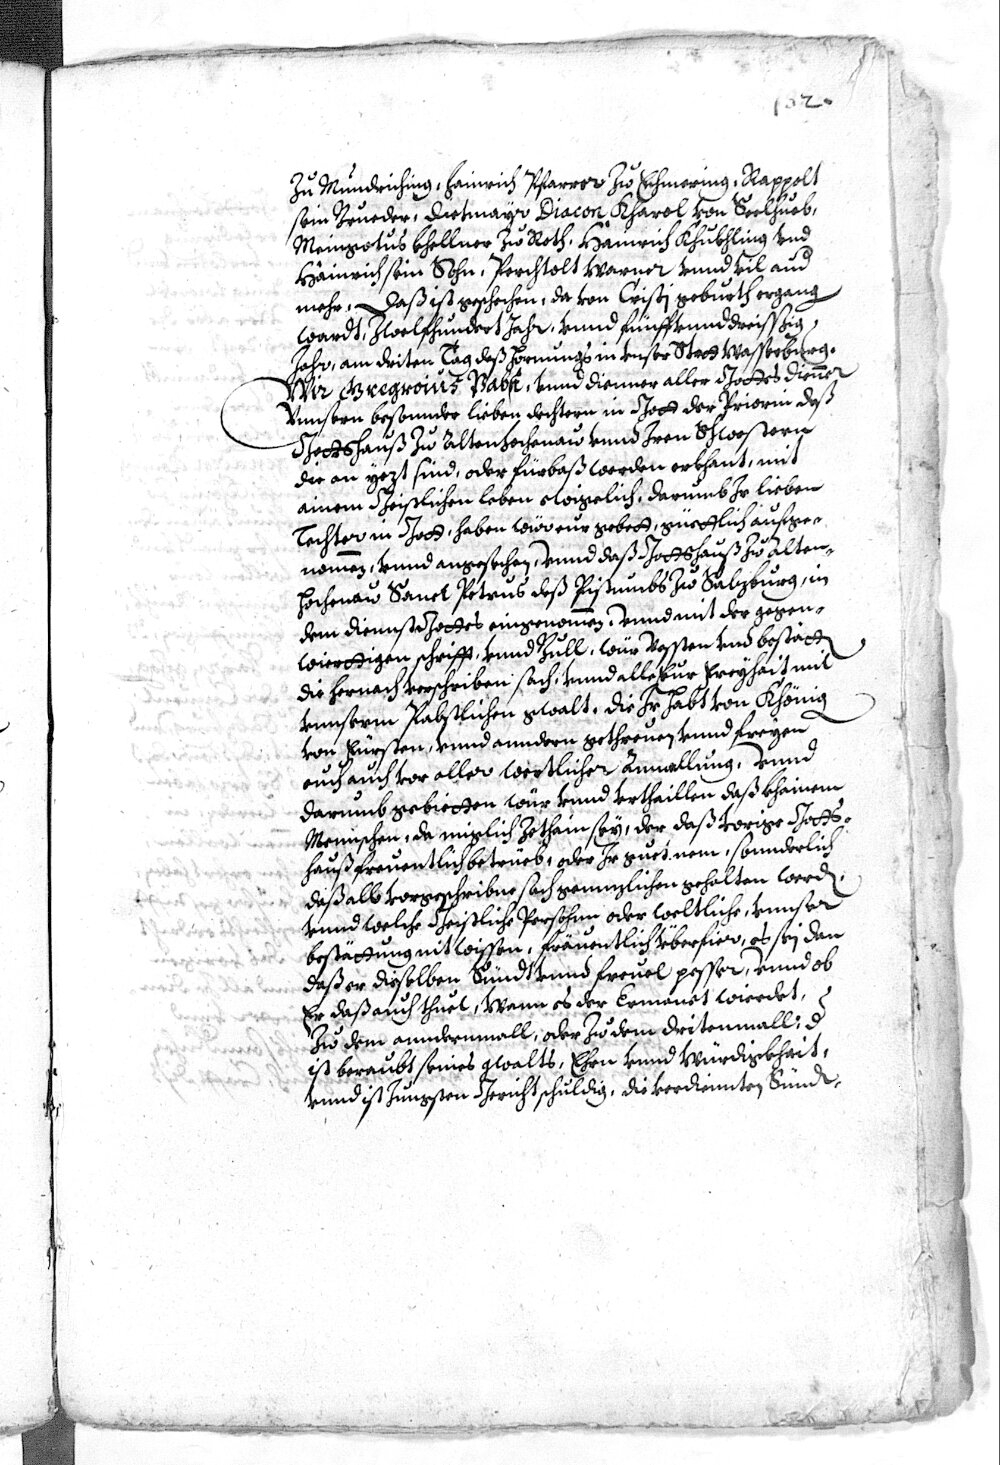 102.
Zu Mundriching, Hainrich Pfarrer Zu Ehmering, Rappolt
sein Brueder, Dietmayr Diacon Kharol von Seelhueb,
Meingotus khellner Zu Roth, Hainrich Khubhling vnd
Hainrich sein Sohn, Perchtolt Warner vnnd vil aud
mehr, Daß ist geschechen, da von Cristj geburth ergang
wardt, Zwelfhundert Jahr, vnnd fünffvnnddreissig
Jahr, am driten Tag deß Hornungs in vnser Statt Wasserburg.
Wir Gregroius Pabst, vnnd dienner aller Gottes dienner
Vnnsern besonnder lieben dechtern in Gott der Priorin deß
Gottshauß Zu Altenhochenau vnnd Jren Schwestern
die an yezt sind, oder fürbaß werden erkhant, mit
ainem Geistlichen leben ewigelich, darumb Jr lieben
Techter in Gott, haben wür eur gebett, güettlich aufge-
nomen, vnnd angesechen, vnnd daß Gottshauß Zu Alten-
hochenau Sanct Petrus deß Pistumbs Zu Salzburg, in
dem diennst Gottes eingenomen, vnnd mit der gegen-
wierttigen schrifft, vnnd Bull, wür Vessten vnd bestätt
die hernach verschriben sach, vnnd alle Eur Freyhait mit
vnnserm Pabstlichen gwalt, die Jr habt von Khönig
von Fürsten, vnnd anndern gethreuen vnnd freyen
euch auch vor aller werttlicher Anuallung, vnnd
darumb gebietten wür vnnd vrthaillen daß kheinem
Mennschen, da müglich Zethain sey, der daß vorige Gotts-
hauß freuentlich betrüeb, oder Jr guet nem, sonnderlich
daß alls vorgeschribne sach gennzlichen gehalten werd,
vnnd welche Geistliche Persohn oder weltliche, vnnser
bestättung mit wissen, fräuentlich überfier, es sej dan
daß er dieselben Sündt vnnd freuel pesser, vnnd ob
Er daß auch thuet, Wann es der Ermanet wierdet,
Zu dem anndernmall, oder Zu dem dritenmall, d
ist beraubt seines gwalts, Ehren vnnd Würdigkhait,
vnnd ist Jungsten Gericht schuldig, die verdiennten Sünd,